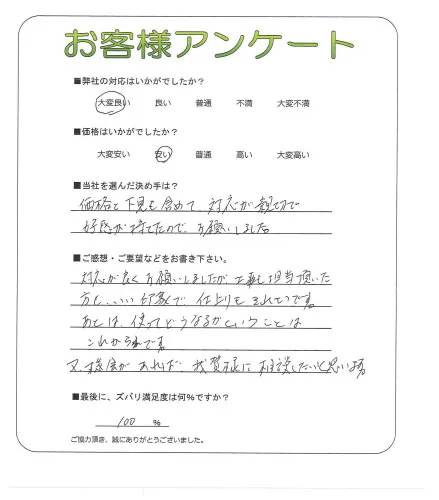 お客様アンケート
■弊社の対応はいかがでしたか？
大変良い 良い 普通 不満 大変不満
■価格はいかがでしたか？
大変安い 安い 普通 高い 大変高い
■当社を選んだ決め手は？
価格と下見も含めて、対応が親切で
好感が持てたので、お願いしました
■ご感想・ご要望などをお書き下さい。
対応が良くお願いしましたが工事も担当頂いた
方も、いい印象で、仕上りもきれいです。
あとは、使ってどうなるかということは
これからです
又、機会があれば、我賀様に相談したいと思います
■最後に、ズバリ満足度は何％ですか？
100 ％
ご協力頂き、誠にありがとうございました。